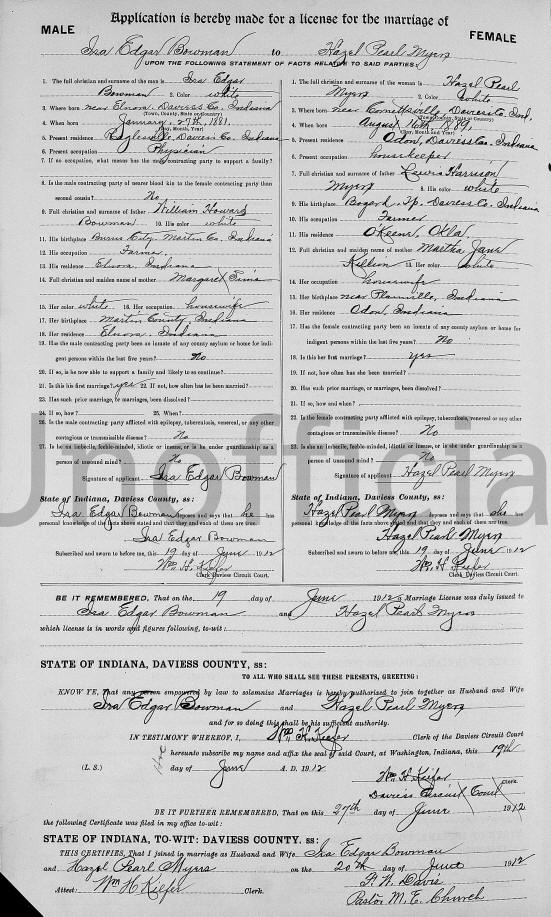 Application is hereby made for a license for the marriage of
MALE
FEMALE
Ira Edgar Bowman to Hazel Pearl Myers
UPON THE FOLLOWING STATEMENT OF FACTS RELATIVE TO SAID PARTIES:
1. The full christian and surname of the man is Ira Edgar
Bowman 2. Color white
3. Where born near Elnora, Daviess Co. Indiana
(Town, County, State or Country)
4. When born January, 27th 1881.
(Day, Month, Year)
5. Present residence Raglesville, Daviess Co. Indiana
6. Present occupation Physician
7. If no occupation, what means has the male contracting party to support a family?
8. Is the male contracting party of nearer blood kin to the female contracting party than
second cousin? No
9. Full christian and surname of father William Howard
Bowman 10. His color white
11. His birthplace Burns City, Martin Co. Indiana
12. His occupation Farmer,
13. His residence Elnora, Indiana
14. Full christian and maiden name of mother Margaret Sims
15. Her color white 16. Her occupation housewife
17. Her birthplace Martin County, Indiana
18. Her residence Elnora, Indiana
19. Has the male contracting party been an inmate of any county asylum or home for indi-
gent persons within the last five years? No
20. If so, is he now able to support a family and likely to so continue?
21. Is this his first marriage? yes 22. If not, how often has he been married?
23. Has such prior marriage, or marriages, been dissolved?
24. If so, how? 25. When?
26. Is the male contracting party afflicted with epilepsy, tuberculosis, venereal, or any other
contagious or transmissible disease? No
27. Is he an imbecile, feeble-minded, idiotic or insane, or is he under guardianship as a
person of unsound mind? No
Signature of applicant Ira Edgar Bowman
State of Indiana, Daviess County, ss:
Ira Edgar Bowman deposes and says that he has
personal knowledge of the facts above stated and that they and each of them are true.
Ira Edgar Bowman
Subscribed and sworn to before me, this 19 day of June 1912
Wm. H. Kiefer
Clerk Daviess Circuit Court.
1. The full christian and surname of the woman is Hazel Pearl
Myers 2. Color white
3. Where born near Cornettsville, Daviess Co. Ind.
(Town, County, State or Country)
4. When born August 16th 1891,
(Day, Month, Year)
5. Present residence Odon, Daviess Co. Indiana
6. Present occupation housekeeper
7. Full christian and surname of father Lewis Harrison
Myers 8. His color white
9. His birthplace Bogard Tp. Daviess Co. Indiana
10. His occupation Farmer
11. His residence O'Keene, Okla.
12. Full christian and maiden name of mother Martha Jane
Killion 13. Her color white
14. Her occupation housewife
15. Her birthplace near Plainville, Indiana
16. Her residence Odon, Indiana
17. Has the female contracting party been an inmate of any county asylum or home for
indigent persons within the last five years? No
18. Is this her first marriage? yes
19. If not, how often has she been married?
20. Has such prior marriage, or marriages, been dissolved?
21. If so, how and when?
22. Is the female contracting party afflicted with epilepsy, tuberculosis, venereal, or any other
contagious or transmissible disease? No
23. Is she an imbecile, feeble-minded, idiotic or insane, or is she under guardianship as a
person of unsound mind? No
Signature of applicant Hazel Pearl Myers
State of Indiana, Daviess County, ss:
Hazel Pearl Myers deposes and says that she has
personal knowledge of the facts above stated and that they and each of them are true.
Hazel Pearl Myers
Subscribed and sworn to before me, this 19 day of June 1912
Wm. H. Kiefer
Clerk Daviess Circuit Court.
Unofficial
BE IT REMEMBERED, That on the 19 day of June 1912 a Marriage License was duly issued to
Ira Edgar Bowman and Hazel Pearl Myers
which license is in words and figures following, to-wit:
STATE OF INDIANA, DAVIESS COUNTY, ss:
TO ALL WHO SHALL SEE THESE PRESENTS, GREETING:
KNOW YE, That any person empowered by law to solemnize Marriages is hereby authorized to join together as Husband and Wife
Ira Edgar Bowman and Hazel Pearl Myers
and for so doing this shall be his sufficient authority.
IN TESTIMONY WHEREOF, I, Wm H. Kiefer Clerk of the Daviess Circuit Court
hereunto subscribe my name and affix the seal of said Court, at Washington, Indiana, this 19th
(L. S.) day of June A. D. 1912
Wm H Kiefer Clerk
Daviess Circuit Court
BE IT FURTHER REMEMBERED, That on this 27th day of June 1912
the following Certificate was filed in my office to-wit:
STATE OF INDIANA, TO-WIT: DAVIESS COUNTY, ss:
THIS CERTIFIES, That I joined in marriage as Husband and Wife Ira Edgar Bowman
and Hazel Pearl Myers on the 20th day of June 1912
F. W. Davis
Attest: Wm H Kiefer Clerk. Pastor M. E. Church